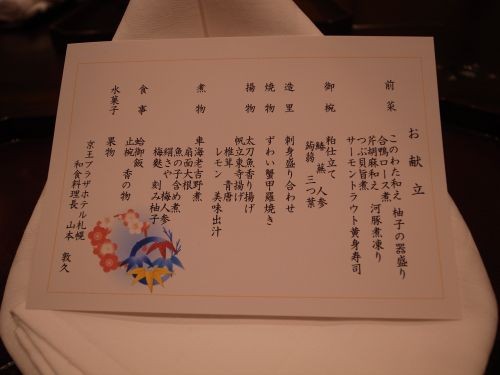 お献立
前菜
このわた和え 柚子の器盛り
合鴨ロース煮
芹胡麻和え 河豚煮凍り
つぶ貝旨煮
サーモントラウト黄身寿司
御椀
粕仕立て
鰊 蕪 人参
蒟蒻 三つ葉
造里
刺身盛り合わせ
焼物
ずわい蟹甲羅焼き
揚物
太刀魚香り揚げ
帆立東寺揚げ
椎茸 青唐
レモン 美味出汁
煮物
車海老吉野煮
扇面大根
魚の子含め煮
絹さや 梅人参
梅麩 刻み柚子
食事
蛤御飯
止椀 香の物
水菓子
果物
京王プラザホテル札幌
和食料理長 山本 敦久